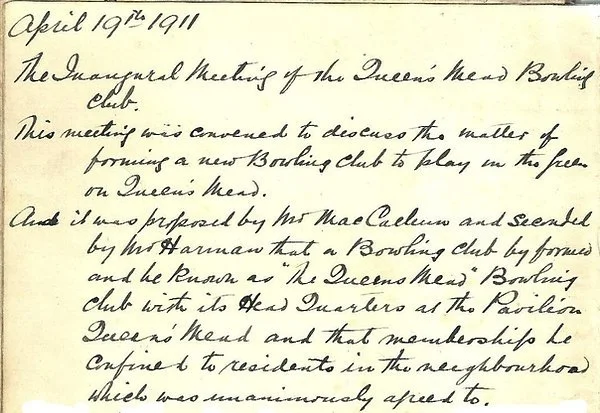 April 19th 1911
The Inaugural Meeting of the Queen's Mead Bowling
Club.
This meeting was convened to discuss the matter of
forming a new Bowling Club to play on the green
on Queen's Mead.
And it was proposed by Mr MacCallum and seconded
by Mr Harman that a Bowling club by formed
and be known as "The Queens Mead" Bowling
Club with its Head Quarters at the Pavilion
Queen's Mead and that membership be
confined to residents in the neighbourhood
which was unanimously agreed to.